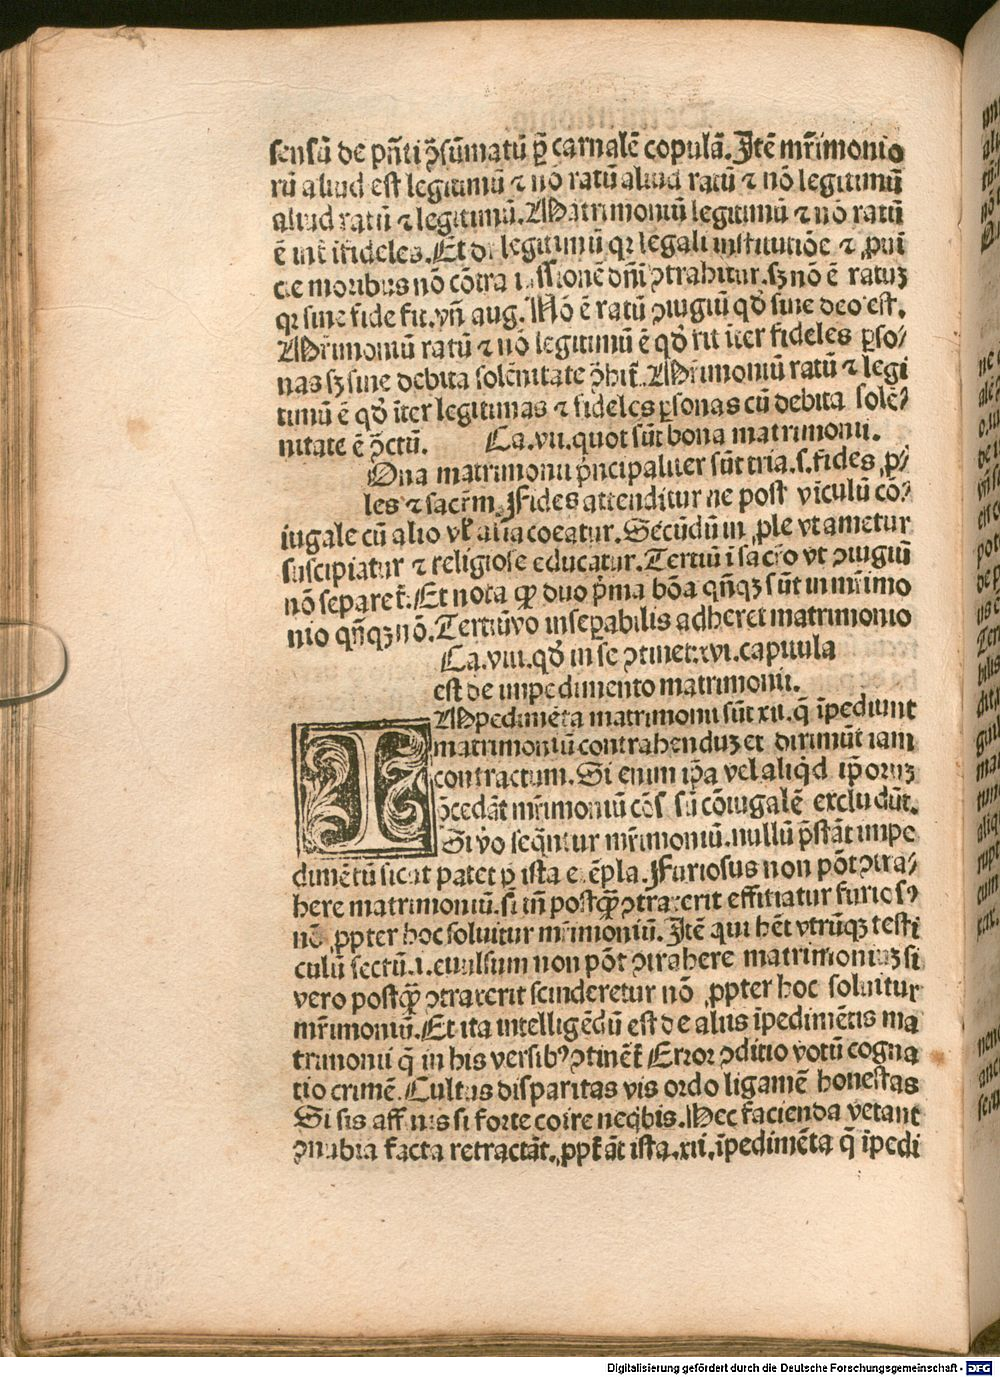 sensū de pn̄ti ꝯsūmatū ꝑ carnalē copulā. Itē mr̄imonio
rū aliud est legitimū ⁊ nō ratū aliud ratū ⁊ nō legitimū
aliud ratū ⁊ legitimū. Matrimoniū legitimū ⁊ nō ratū
ē int̄ ifideles. Et legitimū qꝛ legali institutiōe ⁊
moribus nō cōtra dn̄i ꝯtrahitur. sꝫ nō ē ratuꝫ
qꝛ sine fide fit. vn̄ aug. Nō ē ratū ꝯiugiū qd̓ sine deo est.
Mr̄imoniū ratū ⁊ nō legitimū ē qd̓ fit īter fideles ꝑso/
nas sꝫ sine debita solēnitate ꝯhit̄. Mr̄imoniū ratū ⁊ legi
timū ē qd̓ īter legitimas ⁊ fideles ꝑsonas cū debita solē⸗
nitate ē ꝯctū. Ca. vii. quot sūt bona matrimonii.
Ona matrimonii pͥncipaliter sūt tria. s. fides ꝓ/
les ⁊ sacrm̄. Fides attenditur ne post vīculū cō⸗
iugale cū alio vl̓ alia coeatur. Secūdū in ꝓle vt ametur
suscipiatur ⁊ religiose educatur. Tertiū ī sacro vt ꝯiugiū
nō separet̄. Et nota ꝙ duo pͥma bōa qn̄qꝫ sūt in mr̄imo
nio qn̄qꝫ nō. Tertiū vo inseꝑabilis adheret matrimonio
Ca. viii. qd̓ in se ꝯtinet. xvi. capitula
est de impedimento matrimonii.
IMpedimēta matrimonii sūt xii. q̄ īpediunt
matrimoniū contrahenduꝫ et dirimūt iam
contractum. Si enim ip̄a vel aliqͥd ip̄oruꝫ
p̄cedāt mr̄imoniū cōiugalē excludūt.
Si v̊o seqūtur mr̄imoniū. nullū p̄stāt impe
dimētū sicut patet ꝑ ista exēpla. Furiosus non pōt ꝯtra/
here matrimoniū. si tn̄ postꝙ̄ ꝯtraxerit effitiatur furiosꝰ
nō ꝓpter hoc soluitur mr̄imoniū. Itē qui hēt vtrūqꝫ testi
culū sectū. i. euulsum non pōt ꝯtrahere matrimoniuꝫ si
vero postꝙ̄ ꝯtraxerit scinderetur nō ꝓpter hoc soluitur
mr̄imoniū. Et ita intelligēdū est de aliis īpedimētis ma
trimonii q̄ in his versibꝰ ꝯtinēt̄ Error ꝯditio votū cogna
tio crimē. Cultus disparitas vis ordo ligamē honestas
Si sis affinis si forte coire neqͥbis. Hec facienda vetant
ꝯnubia facta retractāt. ꝓpt̄ āt ista. xii. īpedimēta q̄ īpedi
Digitalisierung gefördert durch die Deutsche Forschungsgemeinschaft - DFG